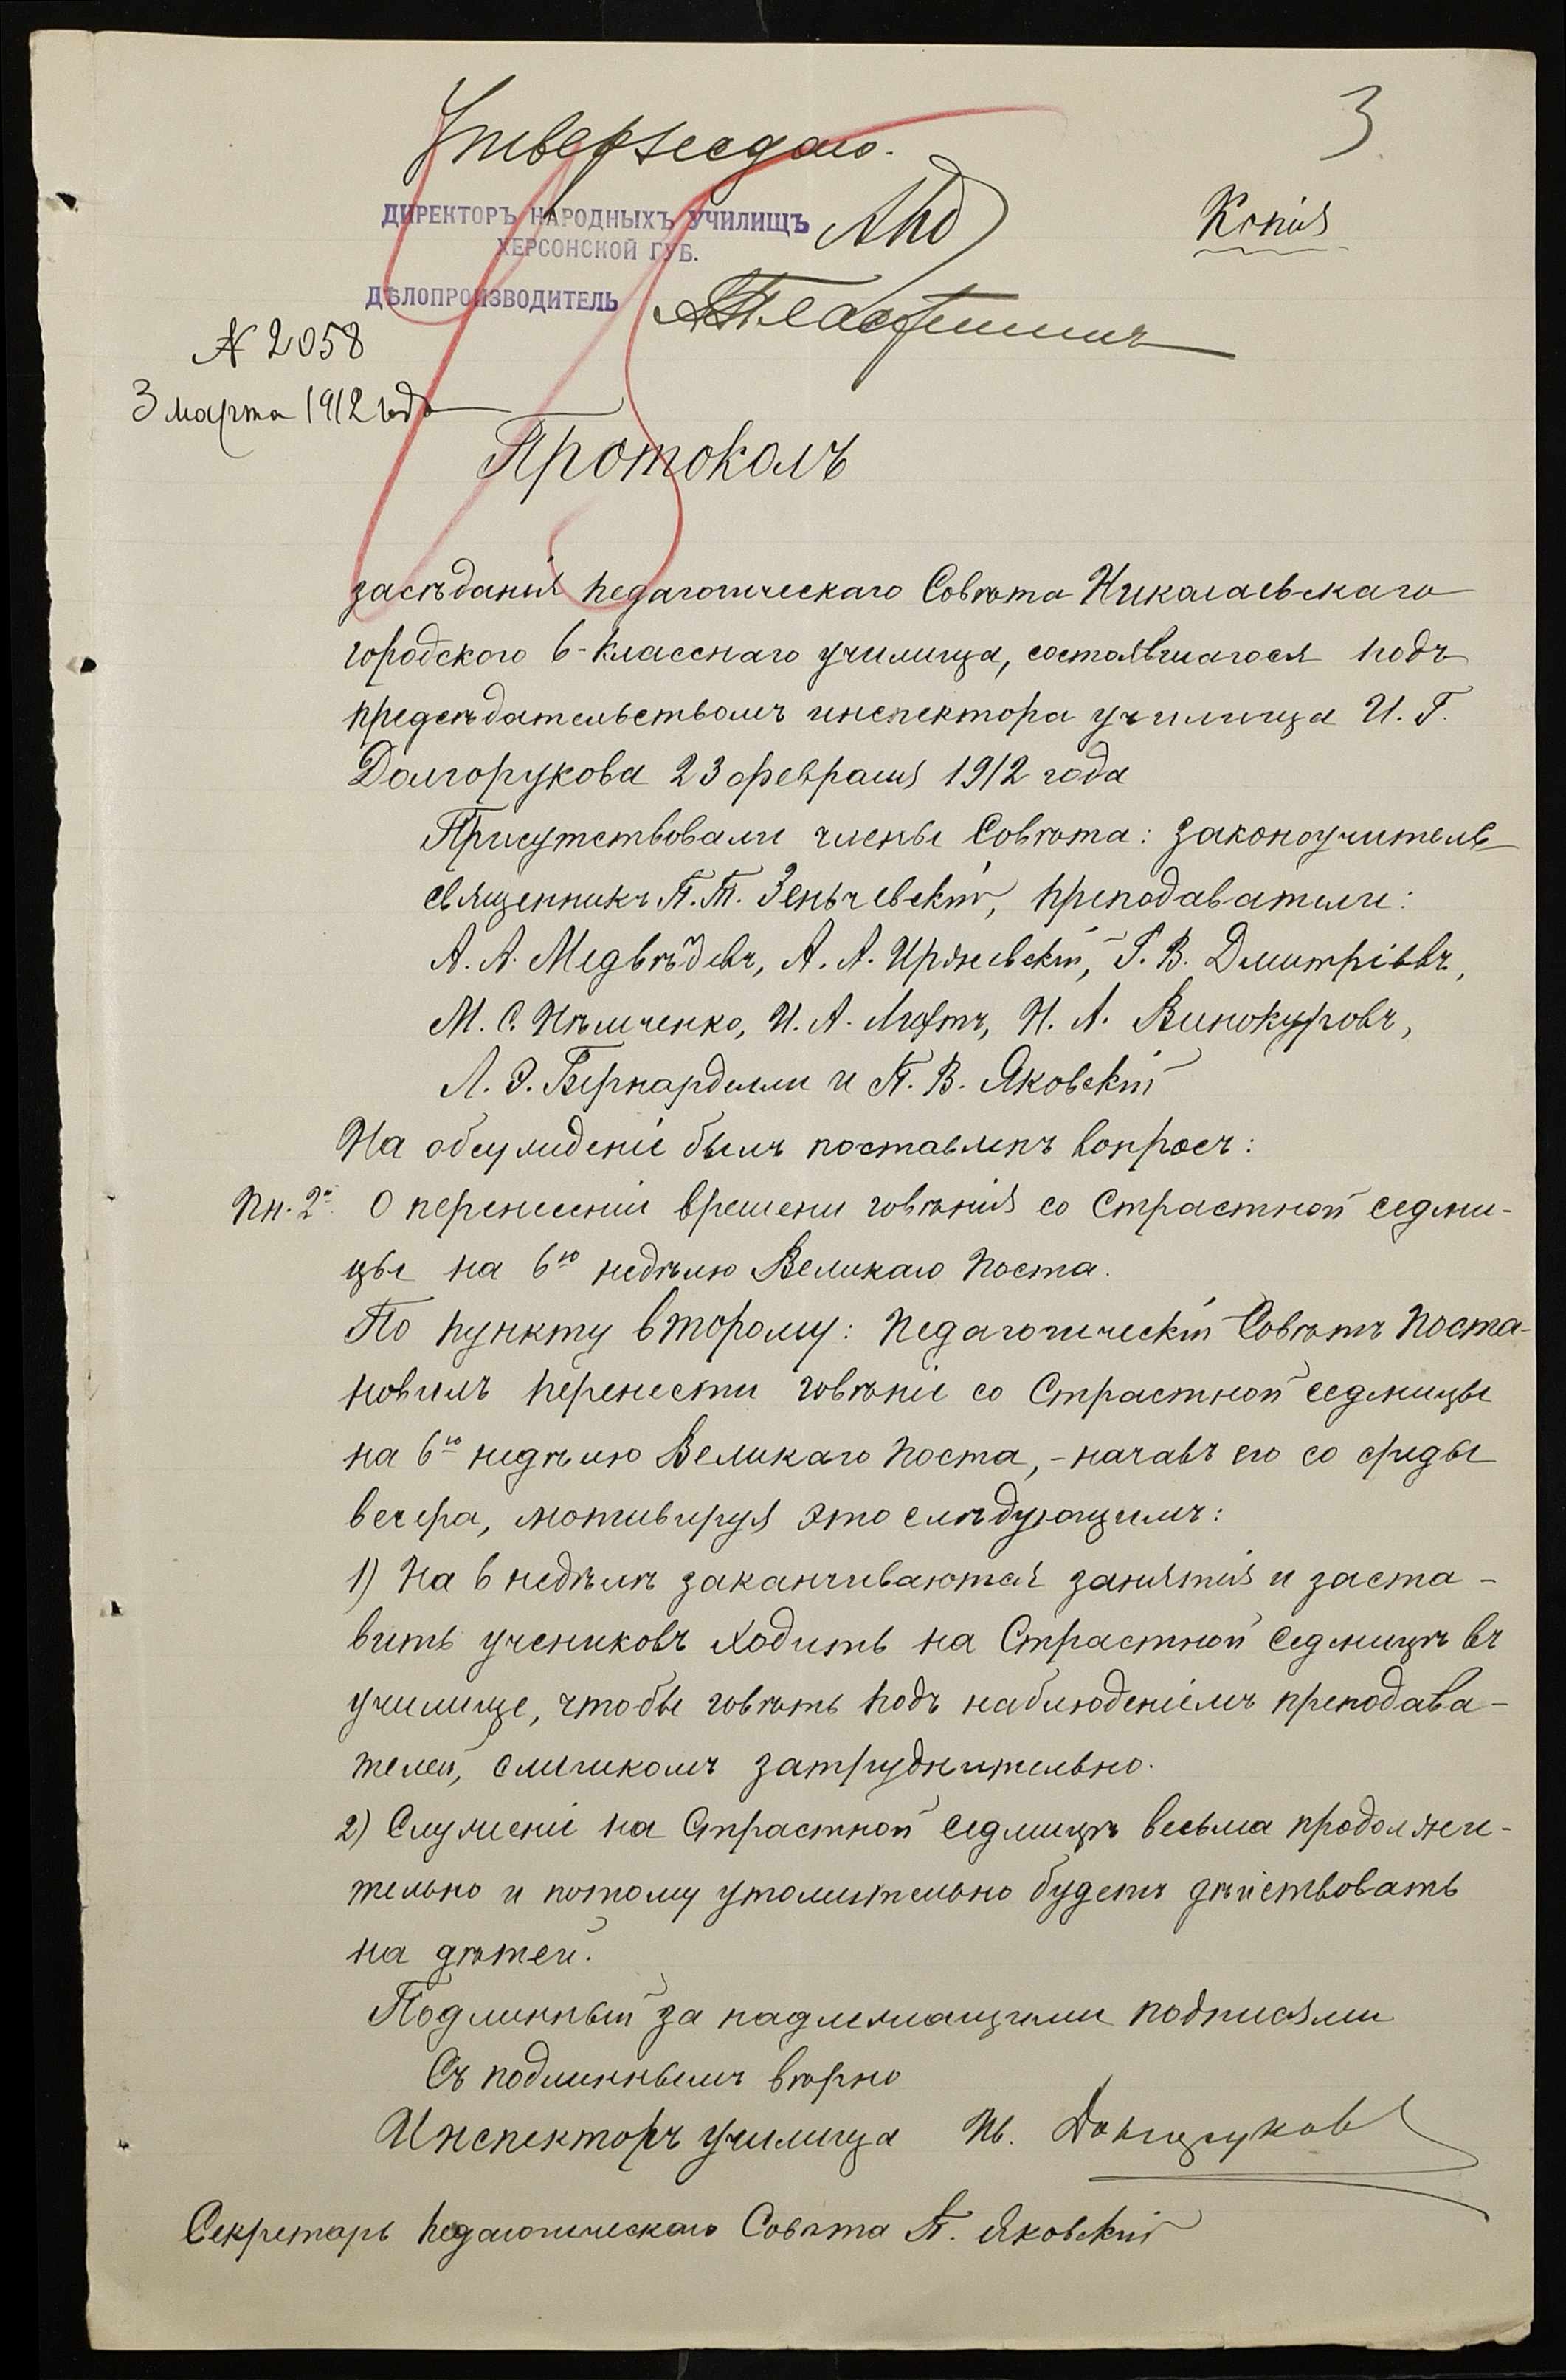 Утверждаю.
3
Копія
ДИРЕКТОРЪ НАРОДНЫХЪ УЧИЛИЩЪ
ХЕРСОНСКОЙ ГУБ.
ДѢЛОПРОИЗВОДИТЕЛЬ
№ 2058
3 марта 1912 года
Протоколъ
засѣданія педагогическаго Совѣта Николаевскаго
городского 6-класснаго училища, состоявшагося подъ
предсѣдательствомъ инспектора училища И. Г.
Долгорукова 23 февраля 1912 года
Присутствовали члены Совѣта: законоучитель
священникъ П. П. Зеньчевскій, преподаватели:
А. А. Медвѣдевъ, А. А. Иржевскій, Г. В. Дмитріевъ,
М. С. Нѣмченко, И. А. Лифтъ, Н. А. Винокуровъ,
Л. Э. Бернарделли и П. В. Яковскій
На обсужденіе былъ поставленъ вопросъ:
Пн. 2й О перенесеніи времени говѣнія со Страстной седми-
цы на 6ю недѣлю Великаго Поста.
По пункту второму: Педагогическій Совѣтъ Поста-
новилъ перенести говѣніе со Страстной седмицы
на 6ю недѣлю Великаго Поста, - начавъ его со среды
вечера, мотивируя это слѣдующимъ:
1) На 6 недѣлѣ заканчиваются занятія и заста-
вить учениковъ ходить на Страстной седмицѣ въ
училище, чтобы говѣть подъ наблюденіемъ преподава-
телей, слишкомъ затруднительно.
2) Служеніе на Страстной седмицѣ весьма продолжи-
тельно и потому утомительно будетъ дѣйствовать
на дѣтей.
Подлинный за надлежащими подписями
Съ подлиннымъ вѣрно
Инспекторъ училища Ив. Долгоруковъ
Секретарь Педагогическаго Совѣта П. Яковскій